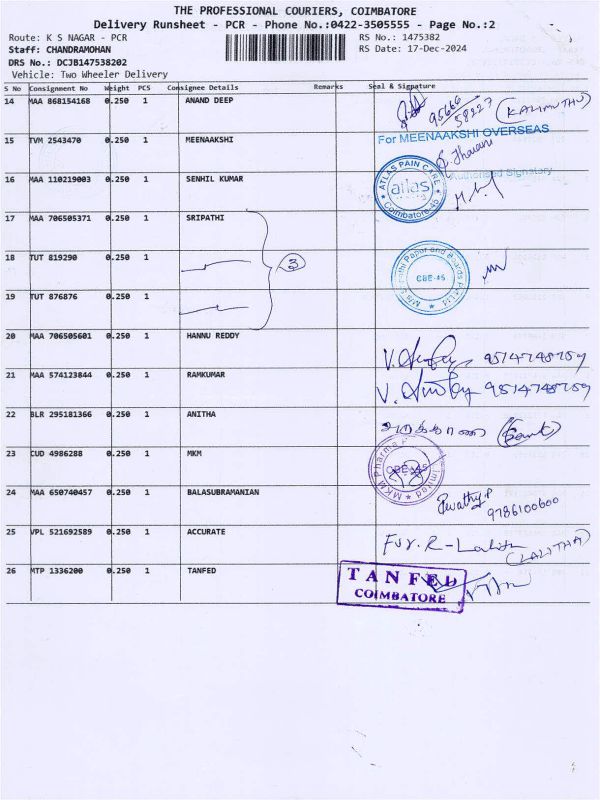 THE PROFESSIONAL COURIERS, COIMBATORE
Delivery Runsheet - PCR - Phone No.:0422-3505555 - Page No.:2
Route: K S NAGAR - PCR RS No.: 1475382
Staff: CHANDRAMOHAN RS Date: 17-Dec-2024
DRS No.: DCJB147538202
Vehicle: Two Wheeler Delivery
S No Consignment No Weight PCS Consignee Details Remarks Seal & Signature
14 MAA 868154168 0.250 1 ANAND DEEP
95666 58227 (KALIMUTHU)
15 TVM 2543470 0.250 1 MEENAAKSHI
For MEENAAKSHI OVERSEAS
Authorised Signatory
16 MAA 110219003 0.250 1 SENHIL KUMAR
ATLAS PAIN CARE
atlas
Coimbatore-45
17 MAA 706505371 0.250 1 SRIPATHI
18 TUT 819290 0.250 1
3
Paper and Boards Pvt Ltd
CBE-45
19 TUT 876876 0.250 1
20 MAA 706505601 0.250 1 HANNU REDDY
9514748759
21 MAA 574123844 0.250 1 RAMKUMAR
9514748759
22 BLR 295181366 0.250 1 ANITHA
23 CUD 4986288 0.250 1 MKM
MKM Pharma
CBE-45
24 MAA 650740457 0.250 1 BALASUBRAMANIAN
9786100600
25 VPL 521692589 0.250 1 ACCURATE
For. R-Lalitha
(LALITHA)
26 MTP 1336200 0.250 1 TANFED
TANFED
COIMBATORE